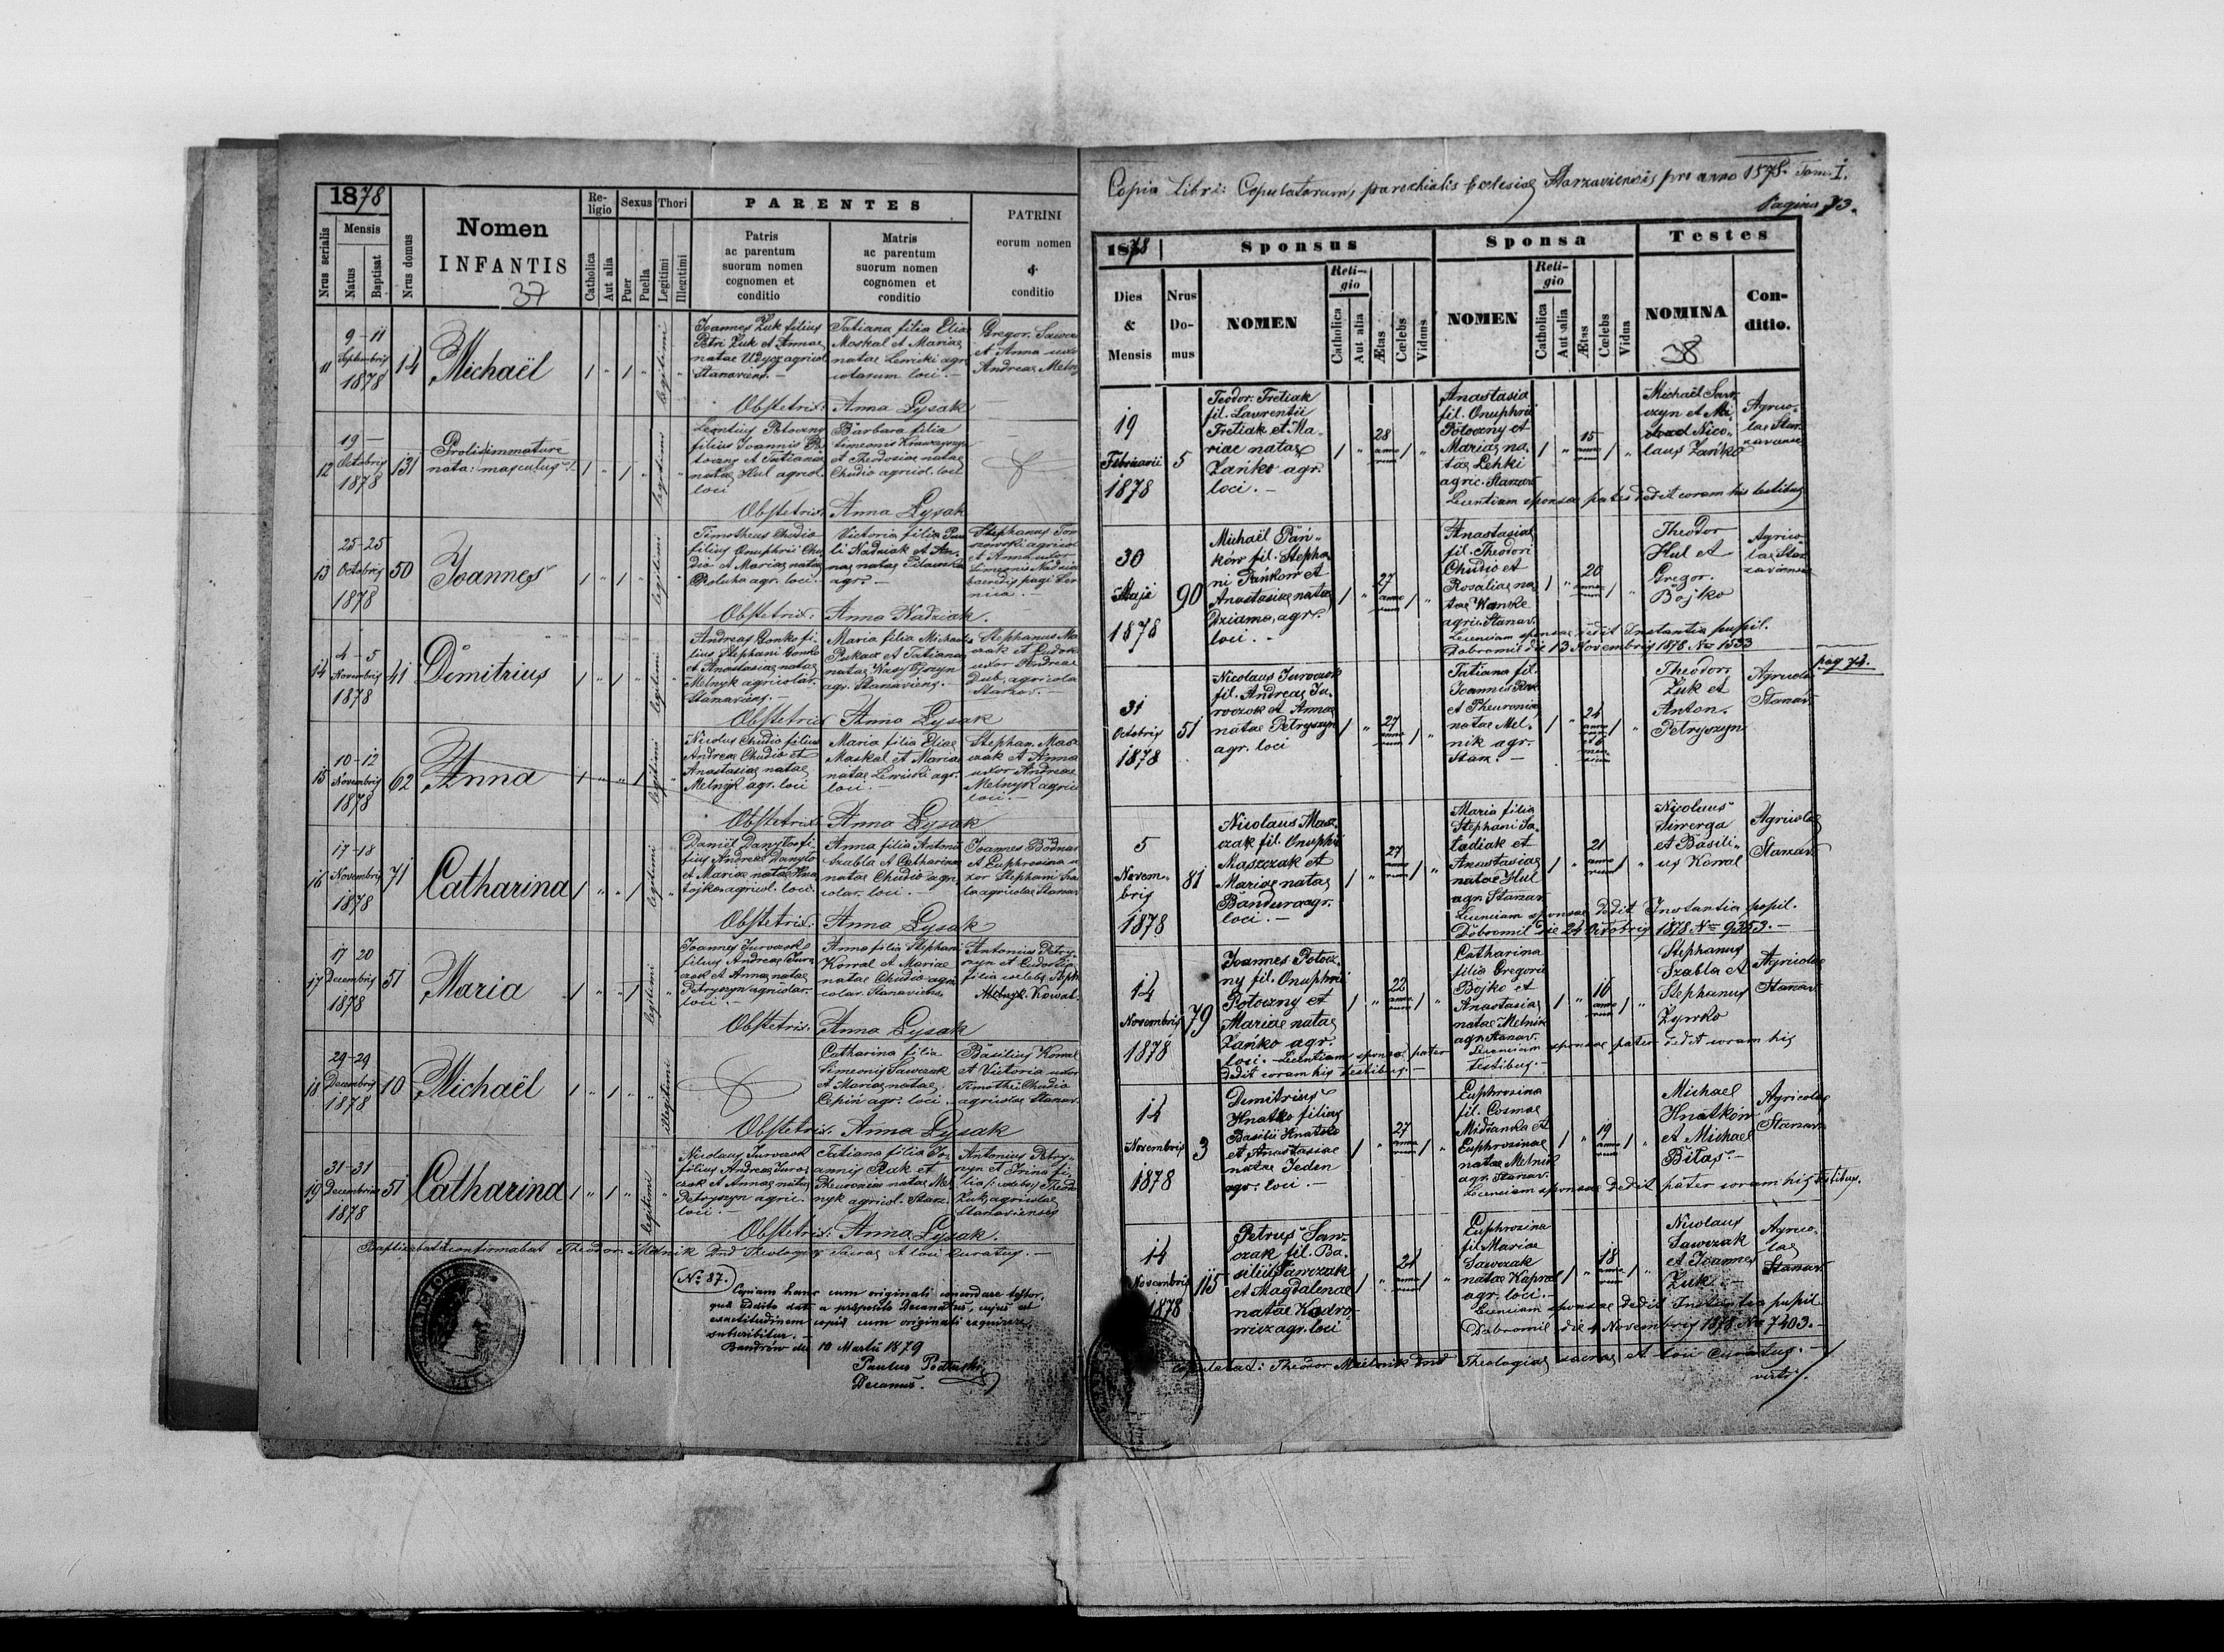 1878
Nrus serialis
Mensis
Natus
Baptisat
Nrus domus
Nomen
INFANTIS
37
Religio
Catholica
Aut alia
Sexus
Puer
Puella
Thori
Legitimi
Illegtimi
PARENTES
Patris
ac parentum
suorum nomen
cognomen et
conditio
Matris
ac parentum
suorum nomen
cognomen et
conditio
PATRINI
eorum nomen
&
conditio
11
9-11
Septembris
1878
14
Michaël
legitimi
Joannes Żuk filius
Petri Żuk et Annae
natae Udycz agricol.
Starzaviens. -
Tatiana filia Eliae
Moskal et Mariae
natae Lewicki agri
colarum loci. -
Gregor.
et Anna uxor
Andreae Melny
Obstetrix: Anna Lysak
12
19 -
Octobris
1878
131
nata: masculus
legitimi
Leontius Potoczny
filius Joannis Po
toczny et Tatianae
natae Hul agricol.
loci
Barbara filia
Simeonis
et Theodosiae natae
Chudio agricol. loci
Obstetrix: Anna Lysak
13
25-25
Octobris
1878
50
Joannes
legitimi
Timotheus Chudio
filius Onuphrii Chu
dio et Mariae natae
agr. loci.
Victoria filia Pau
li Nadziak et An
nae natae
agr. -
Stephanus
et Anna uxor
Simeonis
Obstetrix: Anna Nadziak.
14
4-5
Novembris
1878
41
Dimitrius
legitimi
Andreas Gonko fi-
lius Stephani Gonko
et Anastasiae natae
Melnyk agricolar.
Starzaviens. -
Maria filia Michaelis
Pukacz et Tatianae
natae Wasylyszyn
agr. Starzaviens. -
Stephanus Ma
czak et Eudok
uxor Andreae
Dub, agricola
Starzav. -
Obstetrix Anna Lysak
15
10-12
Novembris
1878
62
Anna
legitimi
Nicolus Chudio filius
Andreae Chudio et
Anastasiae natae
Melnyk agr. loci
Maria filia Eliae
Moskal et Mariae
natae Lewicki agr.
loci. -
Stephan. Masz
czak et Anna
uxor Andreae
Melnyk agric
loci. -
Obstetrix: Anna Lysak
16
17-18
Novembris
1878
71
Catharina
legitimi
Daniel Danylo fi-
lius Andreae Danylo
et Mariae natae
agricol. loci.
Anna filia Antonii
Szabla et Catharinae
natae Chudio agri
colar. loci. -
Joannes Bodnar
et Euphrosina u
xor Stephani Sza
bla agricolae Starzav
Obstetrix: Anna Lysak
17
17 20
Decembris
1878
51
Maria
legitimi
Joannes Jurczak
filius Andreae Jur
czak et Annae natae
Petryszyn agricolar.
loci. -
Anna filia Stephani
Kowal et Mariae
natae Chudio agri
colar. Starzaviens.
Antonius Petry
szyn et Eudocia
filia
Kowal.
Obstetrix. Anna Lysak
18
29-29
Decembris
1878
10
Michaël
illegitimi
Catharina filia
Simeonis Sawczak
et Mariae natae
Cepin agr. loci
Basilius Kowal
et Victoria uxor
Timothei Chudio
agricolae Starzav.
Obstetrix. Anna Lysak
19
31-31
Decembris
1878
51
Catharina
legitimi
Nicolaus Jurczak
filius Andreae Jur
czak et Annae natae
Petryszyn agric.
loci. -
Tatiana filia Jo-
annis Rak et
Pheuroniae natae Mel
nyk agricol. Starz.
Antonius Petry-
szyn et Irina fi-
lia Theodo
Żuk, agricolae
Starzavienses
Obstetrix: Anna Lysak.
Baptisabat et confirmabat Theodor Melnik Sacrae et loci Curatus. -
No 87.
Copiam hanc cum originali concordare testor,
subscribitur. -
Bandrów die 10 Martii 1879
Paulus
Decanus.
Copia Libri: Copulatorum, parochialis Ecclesiae Starzaviensis pro anno 1878. Tom. I.
Pagina 73.
1878
Sponsus
Sponsa
Testes
Dies
&
Mensis
Nrus
Do-
mus
NOMEN
Reli-
gio
Catholica
Aut alia
Ætas
Cœlebs
Viduus
NOMEN
Reli-
gio
Catholica
Aut alia
Ætas
Cœlebs
Vidua
NOMINA
38
Con-
ditio.
19
Februarii
1878
5
Teodor. Tretiak
fil. Laurentii
Tretiak et Ma-
riae natae
Zańko agr.
loci. -
28
annorum
Anastasia
fil. Onuphrii
Potoczny et
Mariae na-
tae Lehki
agric. Starzav
15
annorum
Michaël Saw
czyn et
Nico-
laus Zańko
Agrico-
lae Star-
zaviens
Licentiam sponsae pater dedit coram his testibus
30
Maji
1878
90
Michaël Pań-
ków fil. Stepha-
ni Pańkow et
Anastasiae natae
Dziama, agr.
loci. -
27
annorum
Anastasia
fil. Theodori
Chudio et
Rosaliae na-
tae Wanke
agric. Starzav.
20
annorum
Theodor
Hul et
Gregor.
Bojko
Agrico-
lae Star-
zaviens
Licenciam sponsae dedit Instantia pupil.
Dobromil die 13 Novembris 1878 No 1533
31
Octobris
1878
51
Nicolaus Jurczak
fil. Andreae Ju-
rczak et Annae
natae Petryszyn
agr. loci
27
annorum
Tatiana fil.
Joannis Rak
et Pheuroniae
natae Mel-
nik agr.
Starz. -
24
Theodor.
Żuk et
Anton.
Petryszyn
Agricolae
Starzav.
pag 74.
5
Novem-
bris
1878
81
Nicolaus Masz-
czak fil. Onuphrii
Maszczak et
Mariae natae
Bandura agr.
loci. -
27
annorum
Maria filia
Stephani Sa-
ladiak et
Anastasiae
natae Hul
agr. Starzav.
21
annorum
Nicolaus
et Basili-
us Kowal
Agricolae
Starzav.
Licenciam sponsae dedit Instantia pupil.
Dobromil die 24 Octobris 1878 No 9253. -
14
Novembris
1878
79
Joannes Potocz-
ny fil. Onuphrii
Potoczny et
Mariae natae
Zańko agr.
loci. - Licentiam sponso pater
dedit coram his testibus. -
22
annorum
Catharina
filia Gregorii
Bojko et
Anastasiae
natae Melnik
agr. Starzav.
16
annorum
Stephanus
Szabla et
Stephanus
Zywko
Agricolae
Starzav
Licenciam sponsae pater dedit coram his
testibus. -
14
Novembris
1878
3
Dimitrius
Hnatko filius
Basilii Hnatko
et Anastasiae
natae Jeden
agr. loci. -
27
annorum
Euphrosina
fil. Cosmae
Midianka et
Euphrosinae
natae Melnik
agr. Starzav.
19
annorum
Michael
Hnatkow
et Michael
Bilas. -
Agricolae
Starzav
Licenciam sponsae dedit pater coram his testibus.
14
Novembris
1878
115
Petrus Saw-
czak fil. Ba-
silii Sawczak
et Magdalenae
natae Kodro-
wicz agr. loci
24
annorum
Euphrosina
fil. Mariae
Sawczak
natae Kapral
agr. loci. -
18
annorum
Nicolaus
Sawczak
et Joannes
Żuk. -
Agrico-
lae
Starzav
Licenciam sponsae dedit Instantia pupil
Dobromil die 4 Novembris 1878 No 7403. -
Copulabat: Theodor Melnik Theologiae sacrae et loci Curatus. -